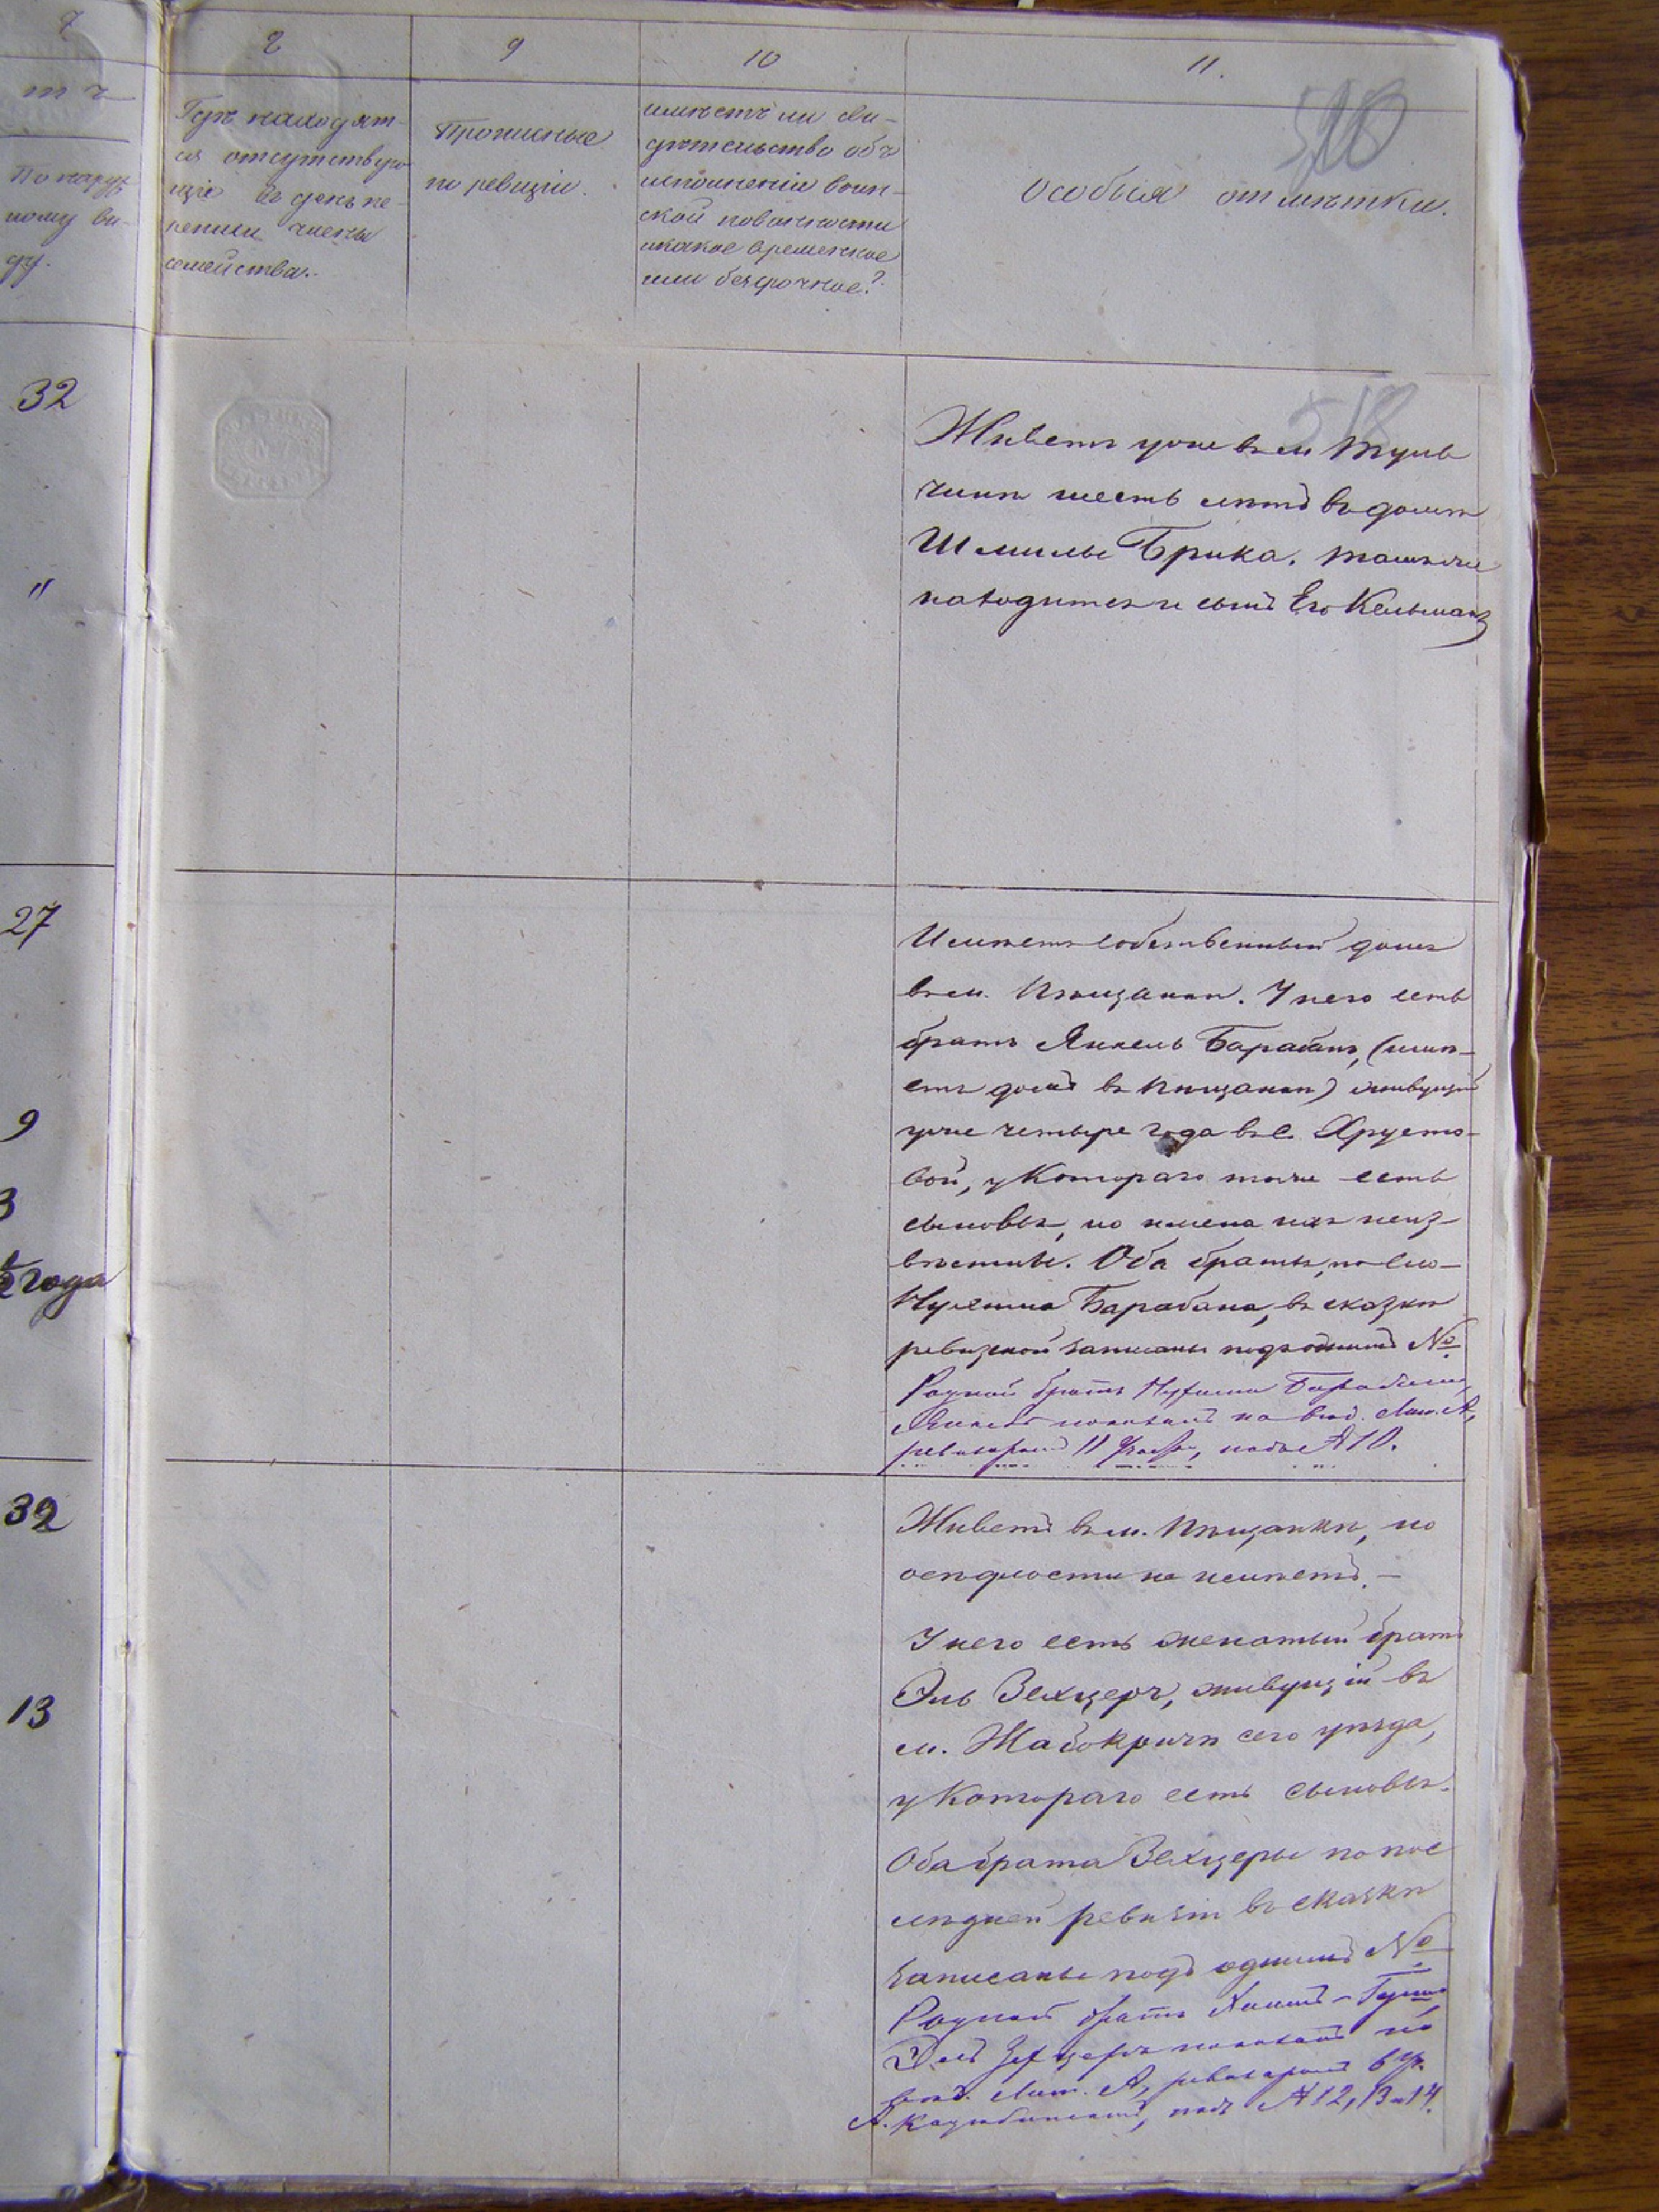 7
8
9
10
11.
т ъ
По наруж
ному ви-
ду.
Гдѣ находят-
ся отсутствую
щіе въ день пе-
реписи члены
семейства.
Прописные
по ревизіи.
имѣетъ ли сви-
дѣтельство объ
исполненіи воин-
ской повинности
и какое временное
или безсрочное?
Особыя отмѣтки.
518
518
32
"
Живетъ уже въ м Туль
чинѣ шесть лѣтъ въ домѣ
Шмиль Брика. тамъ же
находится и сынъ Его Кельманъ
27
9
3
1/2 года
Имѣетъ собственный домъ
въ м. Пѣщанкѣ. У него есть
братъ Янкель Барабанъ, (имѣ-
етъ домъ въ Пѣщанкѣ) живущій
уже четыре года въ с. Хрусто-
вой, у Котораго тоже есть
сыновья, но имена ихъ неиз-
вѣстны. Оба братья, по сло-
Барабана, въ сказкѣ
ревизской записаны подъ однимъ №
Родной братъ Барабана,
показанъ по вѣд. Лит. А,
11 подъ №10.
32
13
Живетъ въ м. Пѣщанкѣ, но
осѣдлости не имѣетъ.—
У него есть женатый братъ
Эль Зехцеръ, живущій въ
м. Жабокричѣ сего уѣзда,
у Котораго есть сыновья.
Оба брата Зехцеры по пос
лѣдней ревизіи въ сказкѣ
записаны подъ однимъ №
Родной братъ
Эль Зехцеръ показанъ по
вѣд. Лит. А, 6 уч.
подъ №12, 13 и 14.